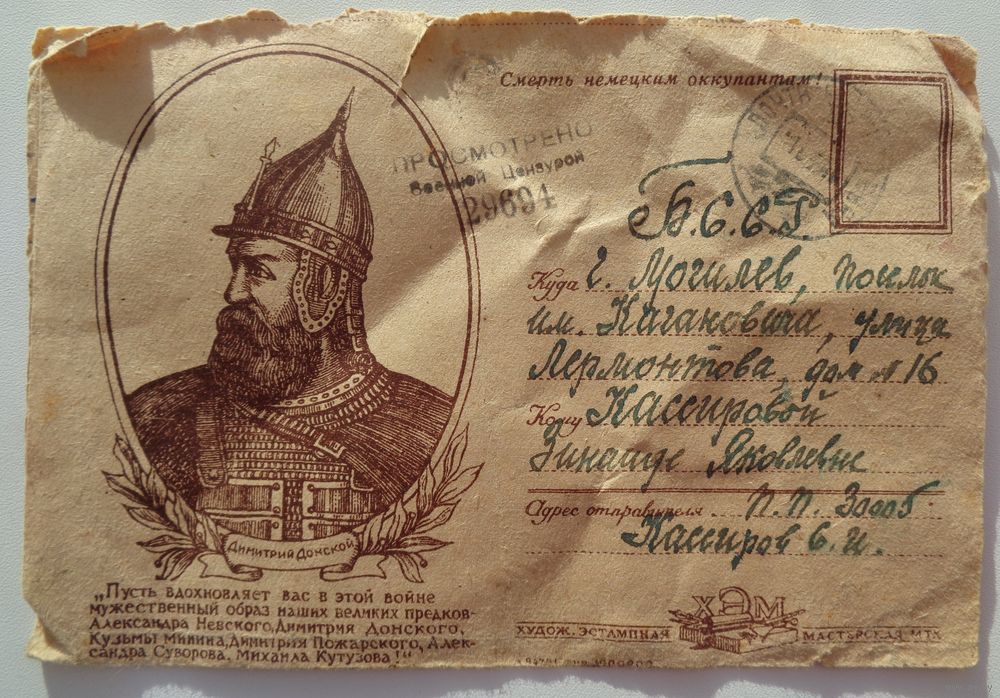 Смерть немецким оккупантам!
ПРОСМОТРЕНО
Военной Цензурой
29694
ПОЧТА
Б.С.С.Р
Куда г. Могилев, поселок
им. Кагановича, улица
Лермонтова, дом № 16
Кому Кассировой
Зинаиде Яковлевне
Адрес отправителя П.П. 30005
Кассиров С.И.
ДИМИТРИЙ ДОНСКОЙ
„Пусть вдохновляет вас в этой войне
мужественный образ наших великих предков-
Александра Невского, Димитрия Донского,
Кузьмы Минина, Димитрия Пожарского, Алек-
сандра Суворова, Михаила Кутузова!"
ХЭМ
ХУДОЖ. ЭСТАМПНАЯ МАСТЕРСКАЯ МТХ